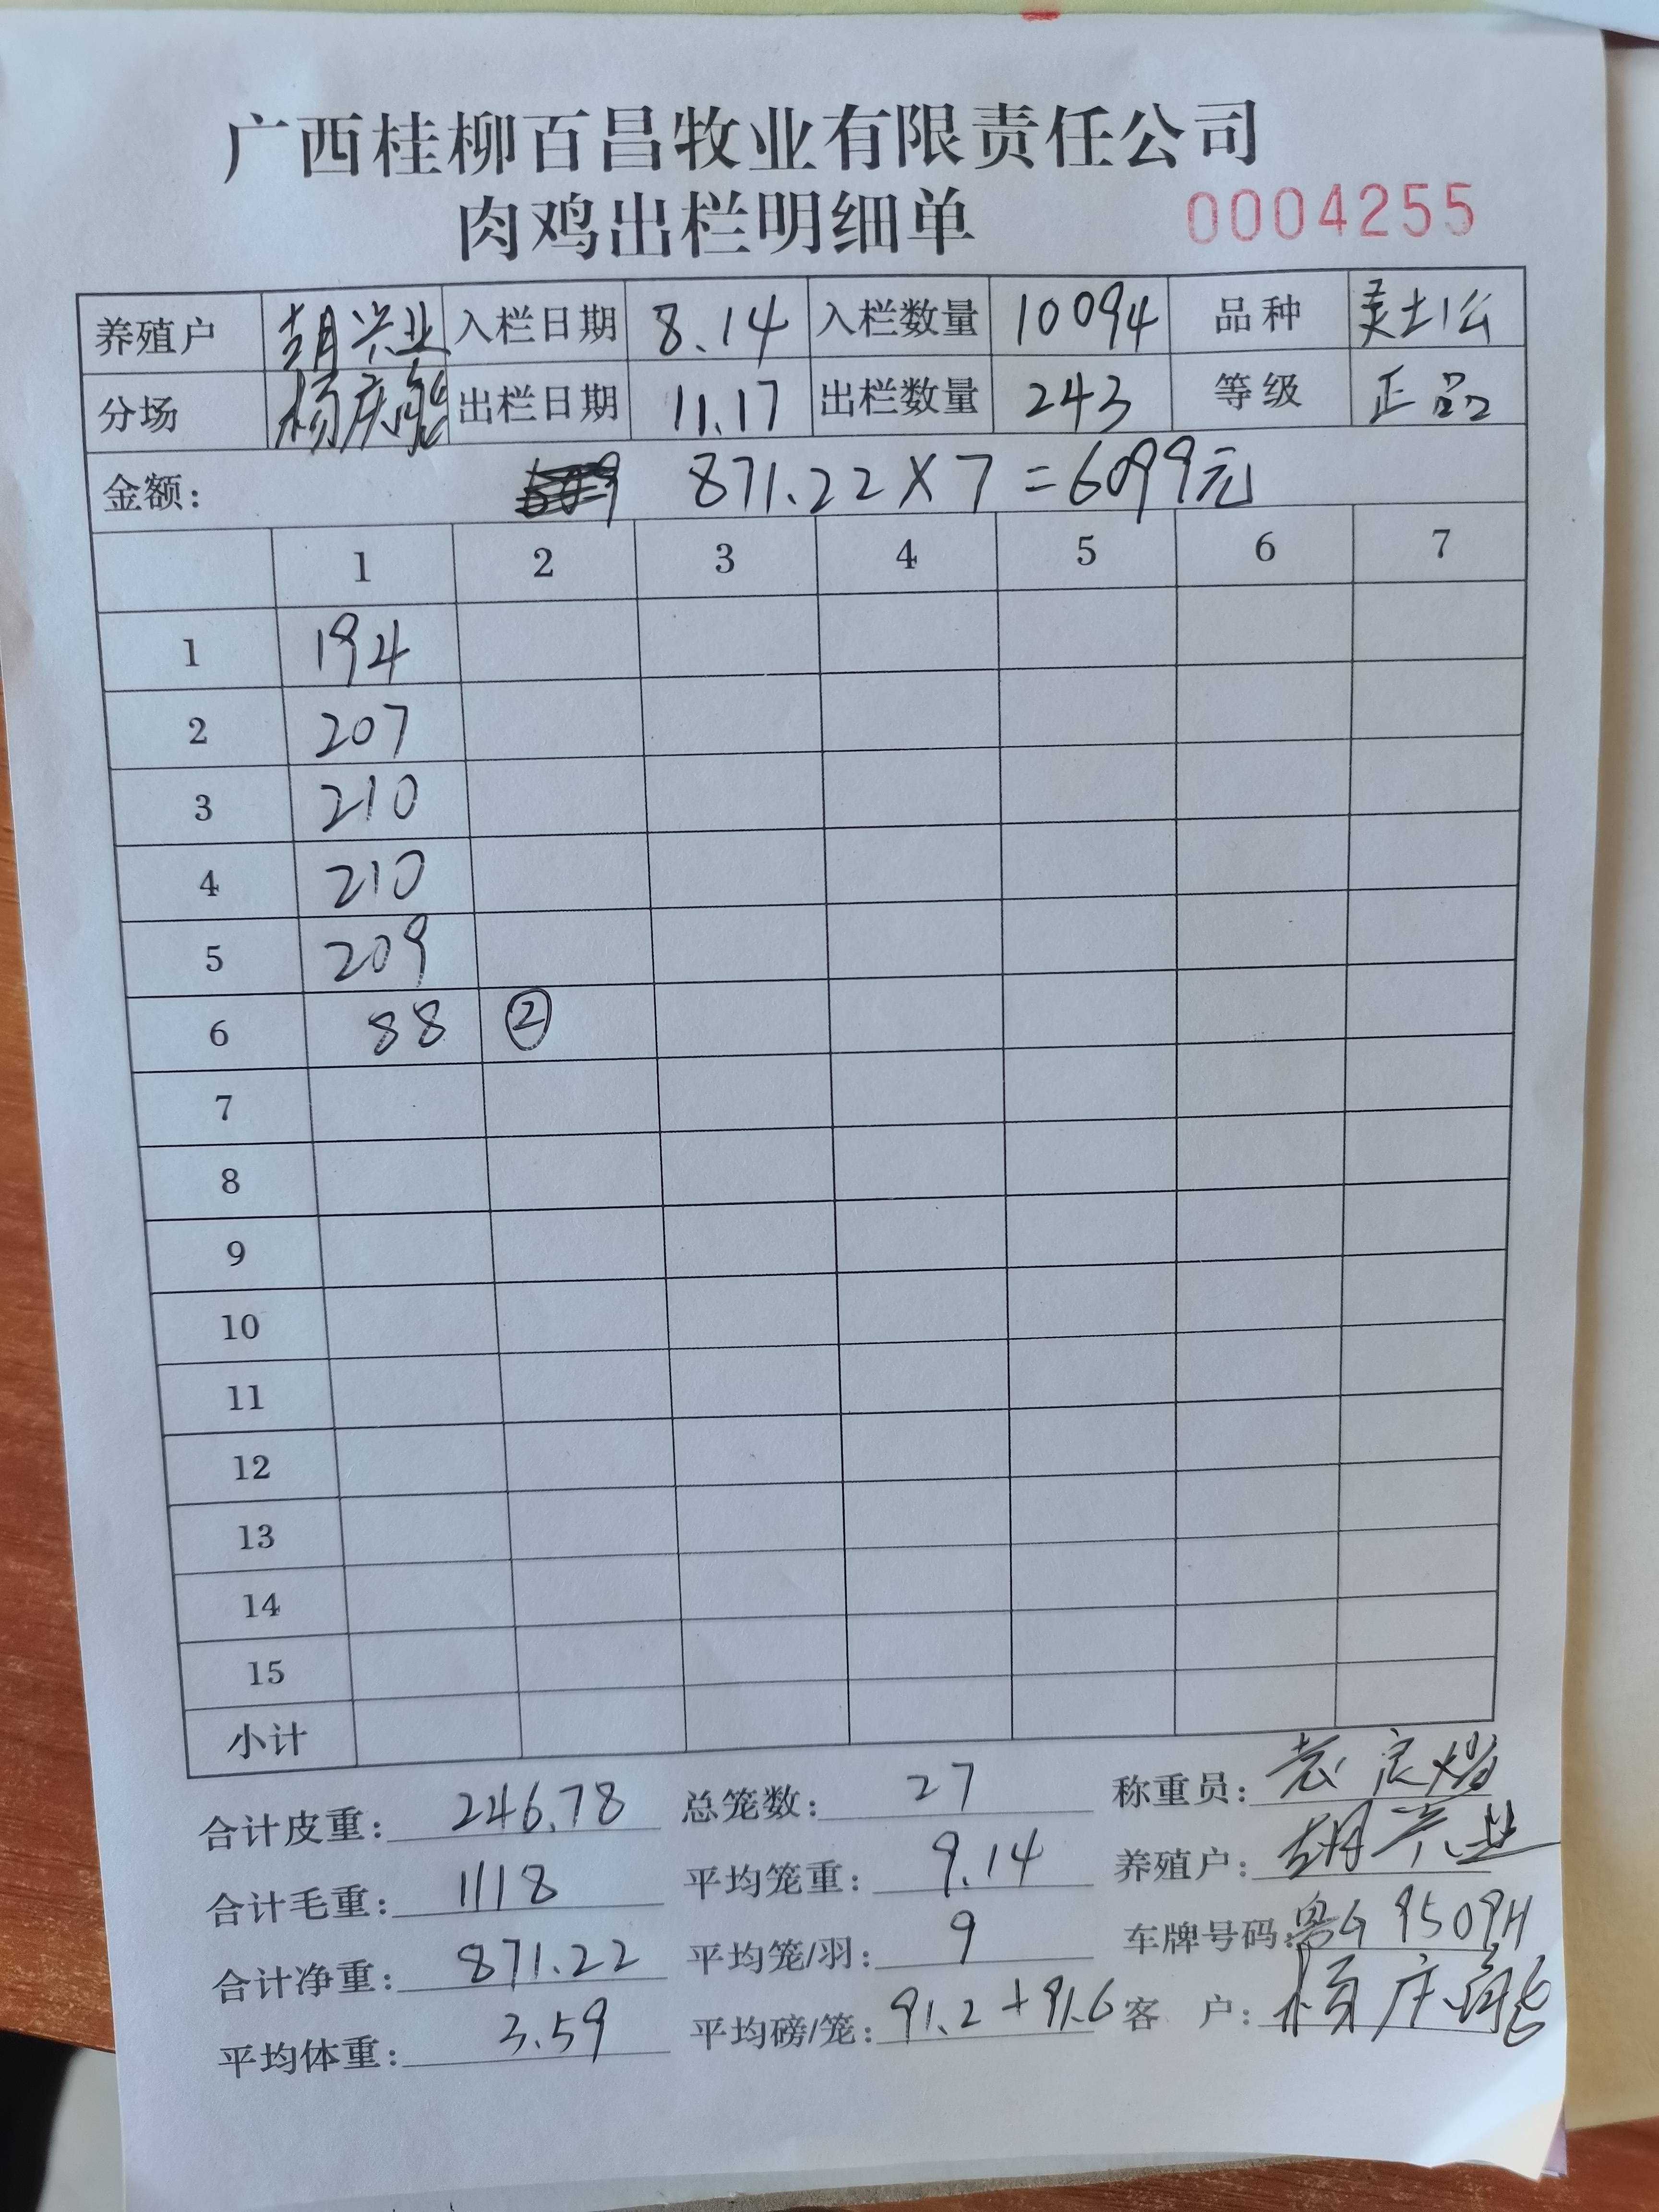 广西桂柳百昌牧业有限责任公司
肉鸡出栏明细单 0004255
养殖户 胡兴业 入栏日期 8.14 入栏数量 10094 品种
分场 杨庆能 出栏日期 11.17 出栏数量 243 等级 正品
金额: 871.22×7=6099元
1 2 3 4 5 6 7
1 194
2 207
3 210
4 210
5 209
6 88 ②
7
8
9
10
11
12
13
14
15
小计
合计皮重: 246.78 总笼数: 27 称重员:
合计毛重: 1118 平均笼重: 9.14 养殖户: 胡兴业
合计净重: 871.22 平均笼/羽: 9 车牌号码: 粤G 9509H
平均体重: 3.59 平均磅/笼: 91.2+91.6 客 户: 杨庆能